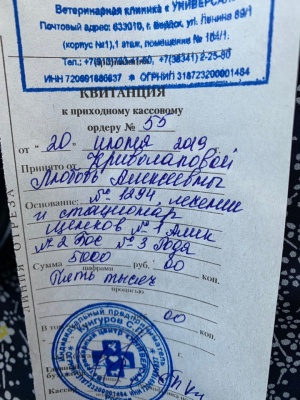 Ветеринарная клиника « УНИВЕРСАЛ
Почтовый адрес: 633010, г. Бердск, ул. Ленина 89/1
(корпус №1), 1 этаж, помещение № 164/1.
Тел.: +7(38341) 2-25-80
ИНН 720691680637 ✶ ОГРНИП 318723200001484
КВИТАНЦИЯ
к приходному кассовому
ордеру № 55
от "20" июня 2019
Принято от Криволаповой
Любовь Алексеевны
Основание: № 1294, лечение
и стационар
щенков № 1
№ 2 Бос № 3
Сумма 5000 руб. 00 коп.
цифрами
Пять тысяч
прописью
00 коп.
В том
ЛИНИЯ ОТРЕЗА
Индивидуальный предприниматель
Кунгуров С